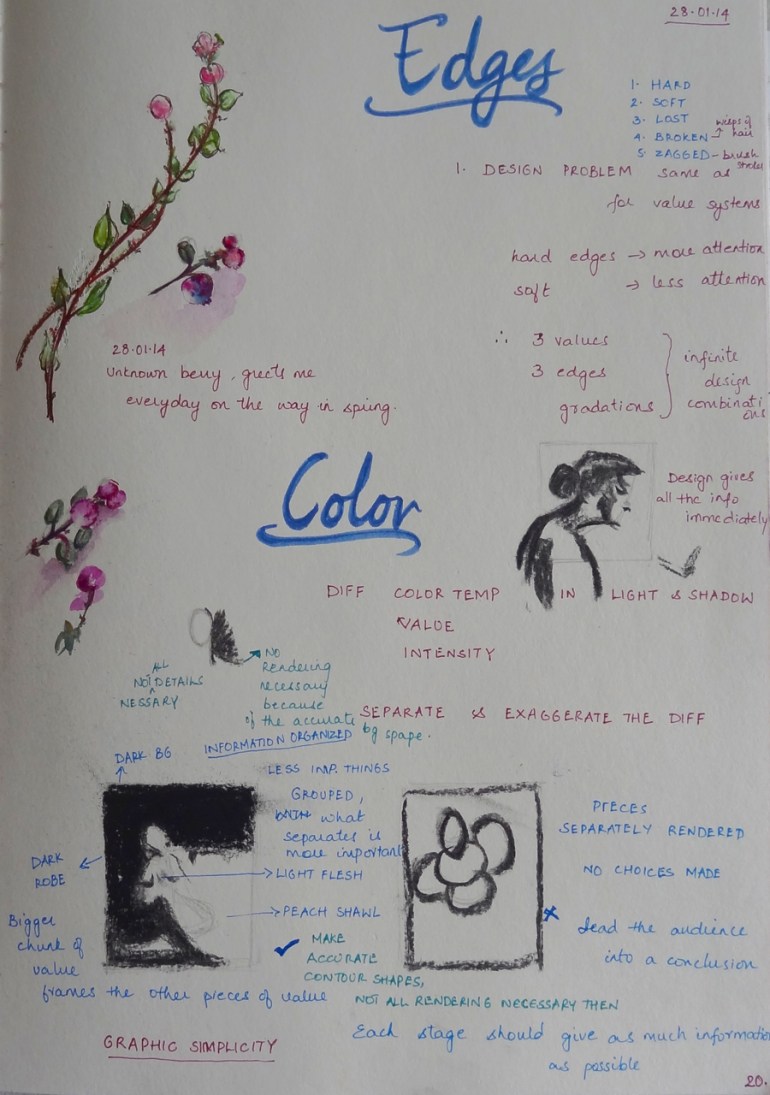 28.01.14
Edges
1. HARD
2. SOFT
3. LOST
4. BROKEN → wisps of hair
5. ZAGGED - brush strokes
1. DESIGN PROBLEM same as
for value systems
hard edges → more attention
soft → less attention
∴ 3 values
3 edges
gradations
infinite
design
combinati
ons
28.01.14
Unknown berry, greets me
everyday on the way in spring.
Color
Design gives
all the info
immediately
DIFF COLOR TEMP IN LIGHT & SHADOW
VALUE
INTENSITY
NO
Rendering
necessary
because
of the accurate
bg spape.
ALL
NOT DETAILS
NESSARY
SEPARATE & EXAGGERATE THE DIFF
INFORMATION ORGANIZED
DARK BG
LESS IMP. THINGS
GROUPED,
what
separates is
more important
DARK
ROBE
LIGHT FLESH
PEACH SHAWL
PIECES
SEPARATELY RENDERED
NO CHOICES MADE
Lead the audience
into a conclusion
Bigger
chunk of
value
frames the other pieces of value
MAKE
ACCURATE
CONTOUR SHAPES,
NOT ALL RENDERING NECESSARY THEN
GRAPHIC SIMPLICITY
Each stage should give as much information
as possible
20.